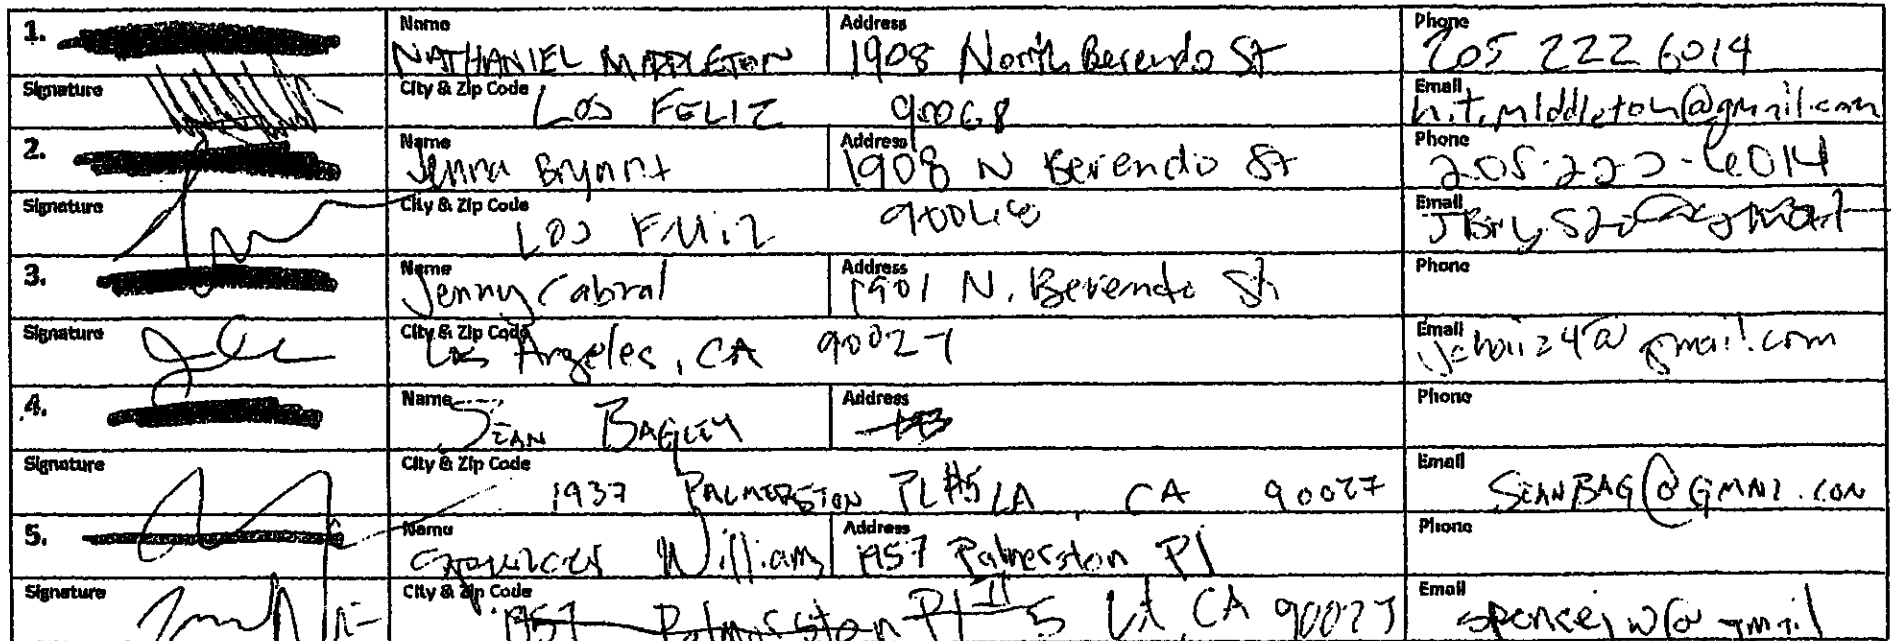 1. Name NATHANIEL MIDDLETON Address 1908 North Berendo St Phone 205 222 6014
Signature City & Zip Code LOS FELIZ 90068 Email n.t.middleton@gmail.com
2. Name Jenna Bryant Address 1908 N Berendo St Phone 205-222-6014
Signature City & Zip Code Los Feliz Email
3. Name Jenny Cabral Address 1901 N. Berendo St Phone
Signature City & Zip Code Los Angeles, CA 90027 Email
4. Name SEAN BAGLEY Address Phone
Signature City & Zip Code 1937 PALMERSTON PL #5 LA, CA 90027 Email SEANBAG@GMAI.COM
5. Name Williams Address 1957 Palmerston Pl Phone
Signature City & Zip Code 1957 Palmerston Pl 5 LA CA 90027 Email